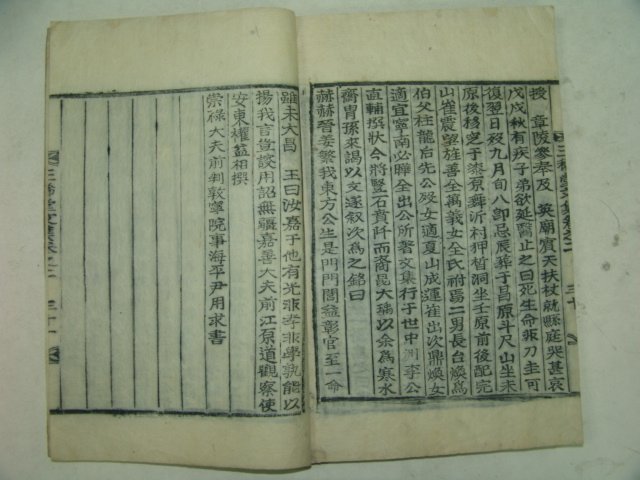 授 章陵參奉及 英廟賓天扶杖就縣庭哭甚哀
戊戌秋有疾子弟欲延醫止之曰死生命非刀圭可
復翌日殁九月旬八卽忌辰葬于昌原斗尺山坐未
原後移窆于漆原舞沂村狎洞坐壬原前後配完
山崔震望旌善全萬義女全氏祔焉二男長台煥爲
伯父柱龍后先公殁女適夏山成運崔出次鼎煥女
適宜寧南必曄全出公所著文集行于世中洲李公
直輔撰狀今將竪石賁阡而裔昆大瑀以余爲寒水
齋胄孫來謁以文遂叙次爲之銘曰
赫赫晉姜繁我東方公生是門門閭益彰官至一命
雖未大昌 王曰汝嘉于他有光非孝非學孰能以
揚我言豈諛用詔無疆嘉善大夫前江原道觀察使
安東權益相撰
崇祿大夫前判敦寧院事海平尹用求書